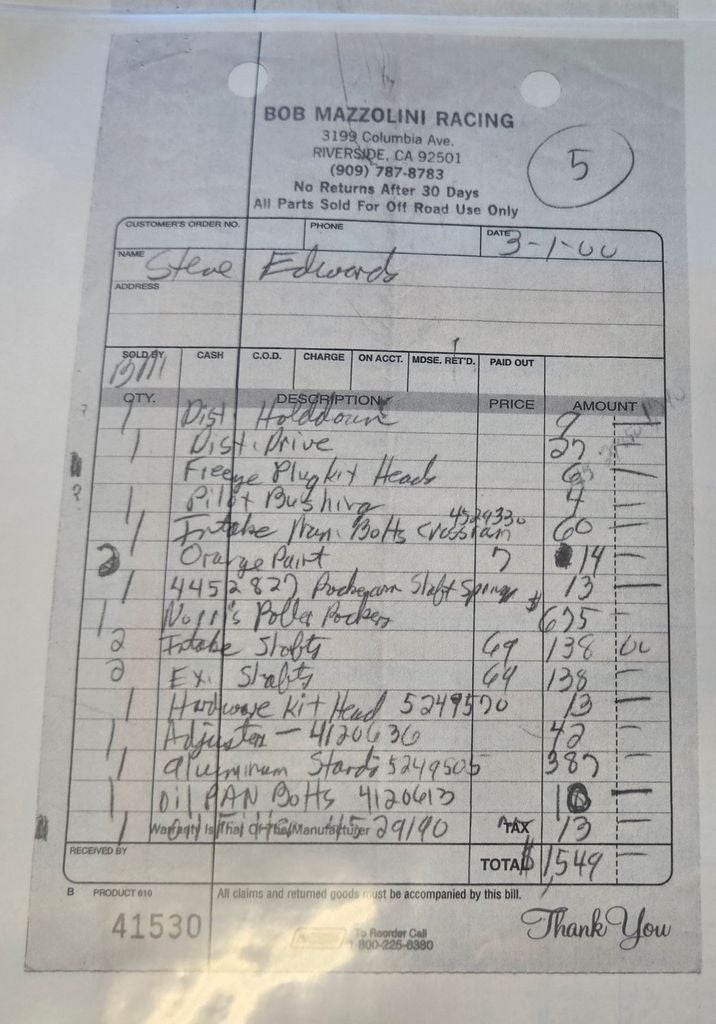 BOB MAZZOLINI RACING
3199 Columbia Ave.
RIVERSIDE, CA 92501
(909) 787-8783
No Returns After 30 Days
All Parts Sold For Off Road Use Only
5
CUSTOMER'S ORDER NO. PHONE DATE 3-1-00
NAME Steve Edwards
ADDRESS
SOLD BY CASH C.O.D. CHARGE ON ACCT. MDSE. RET'D. PAID OUT
Bill
QTY. DESCRIPTION PRICE AMOUNT
1 Dist. Holddown 9 —
1 Dist. Drive 27 —
Freeze Plug kit Heads 6 —
1 Pilot Bushing 4 —
1 Intake Man. Bolts Crossram 4529330 60 —
2 Orange Paint 7 14 —
1 4452827 Rockerarm Shaft Springs 13 —
1 Norris Roller Rockers $ 675 —
2 Intake Shafts 69 138 00
2 Ex. Shafts 69 138 —
1 Hardware Kit Head 5249570 13 —
1 Adjusters — 4120636 42 —
1 Aluminum Stands 5249505 387 —
1 Oil PAN Bolts 4120613 10 —
1 Warranty Is That Of The Manufacturer 29190 TAX 13 —
RECEIVED BY TOTAL $1549 —
B PRODUCT 610 All claims and returned goods must be accompanied by this bill.
41530 To Reorder Call Thank You
1-800-225-6380